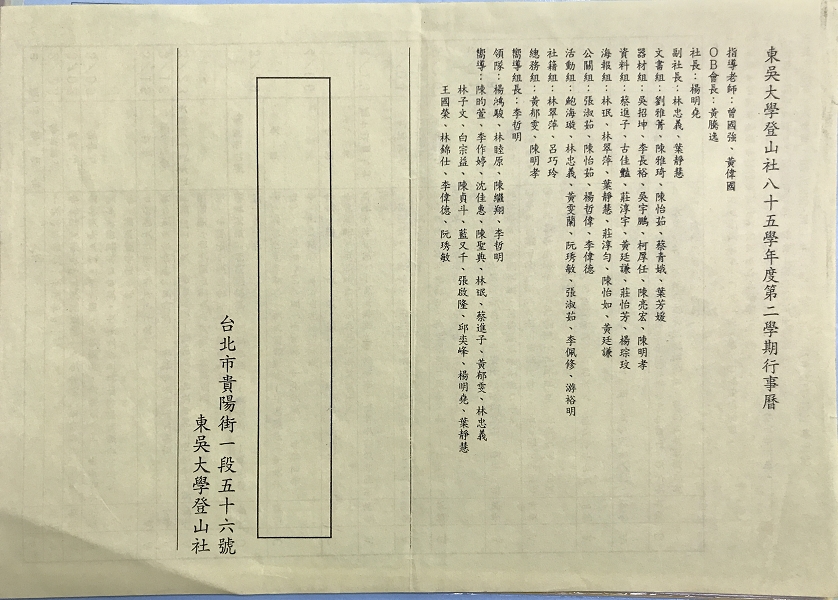 東吳大學登山社八十五學年度第二學期行事曆
指導老師：曾國強、黃偉國
OB會長：黃騰逸
社長：楊明堯
副社長：林忠義、葉靜慧
文書組：劉雅菁、陳雅琦、陳怡茹、蔡青娥、葉芳媛
器材組：吳招坤、李長裕、吳宇鵬、柯厚任、陳亮宏、陳明孝
資料組：蔡進子、古佳豔、莊淳宇、黃廷謙、莊怡芳、楊琮玟
海報組：林珉、林翠萍、葉靜慧、莊淳勻、陳怡如、黃廷謙
公關組：張淑茹、陳怡茹、楊哲偉、李偉德
活動組：鮑海璇、林忠義、黃雯蘭、阮琇敏、張淑茹、李佩修、游裕明
社籍組：林翠萍、呂巧玲
總務組：黃郁雯、陳明孝
嚮導組長：李哲明
領隊：楊鴻駿、林睦原、陳繼翔、李哲明
嚮導：陳昀萱、李作婷、沈佳惠、陳聖典、林珉、蔡進子、黃郁雯、林忠義
林子文、白宗益、陳貞斗、藍又千、張啟隆、邱奕峰、楊明堯、葉靜慧
王國榮、林錦仕、李偉德、阮琇敏
台北市貴陽街一段五十六號
東吳大學登山社